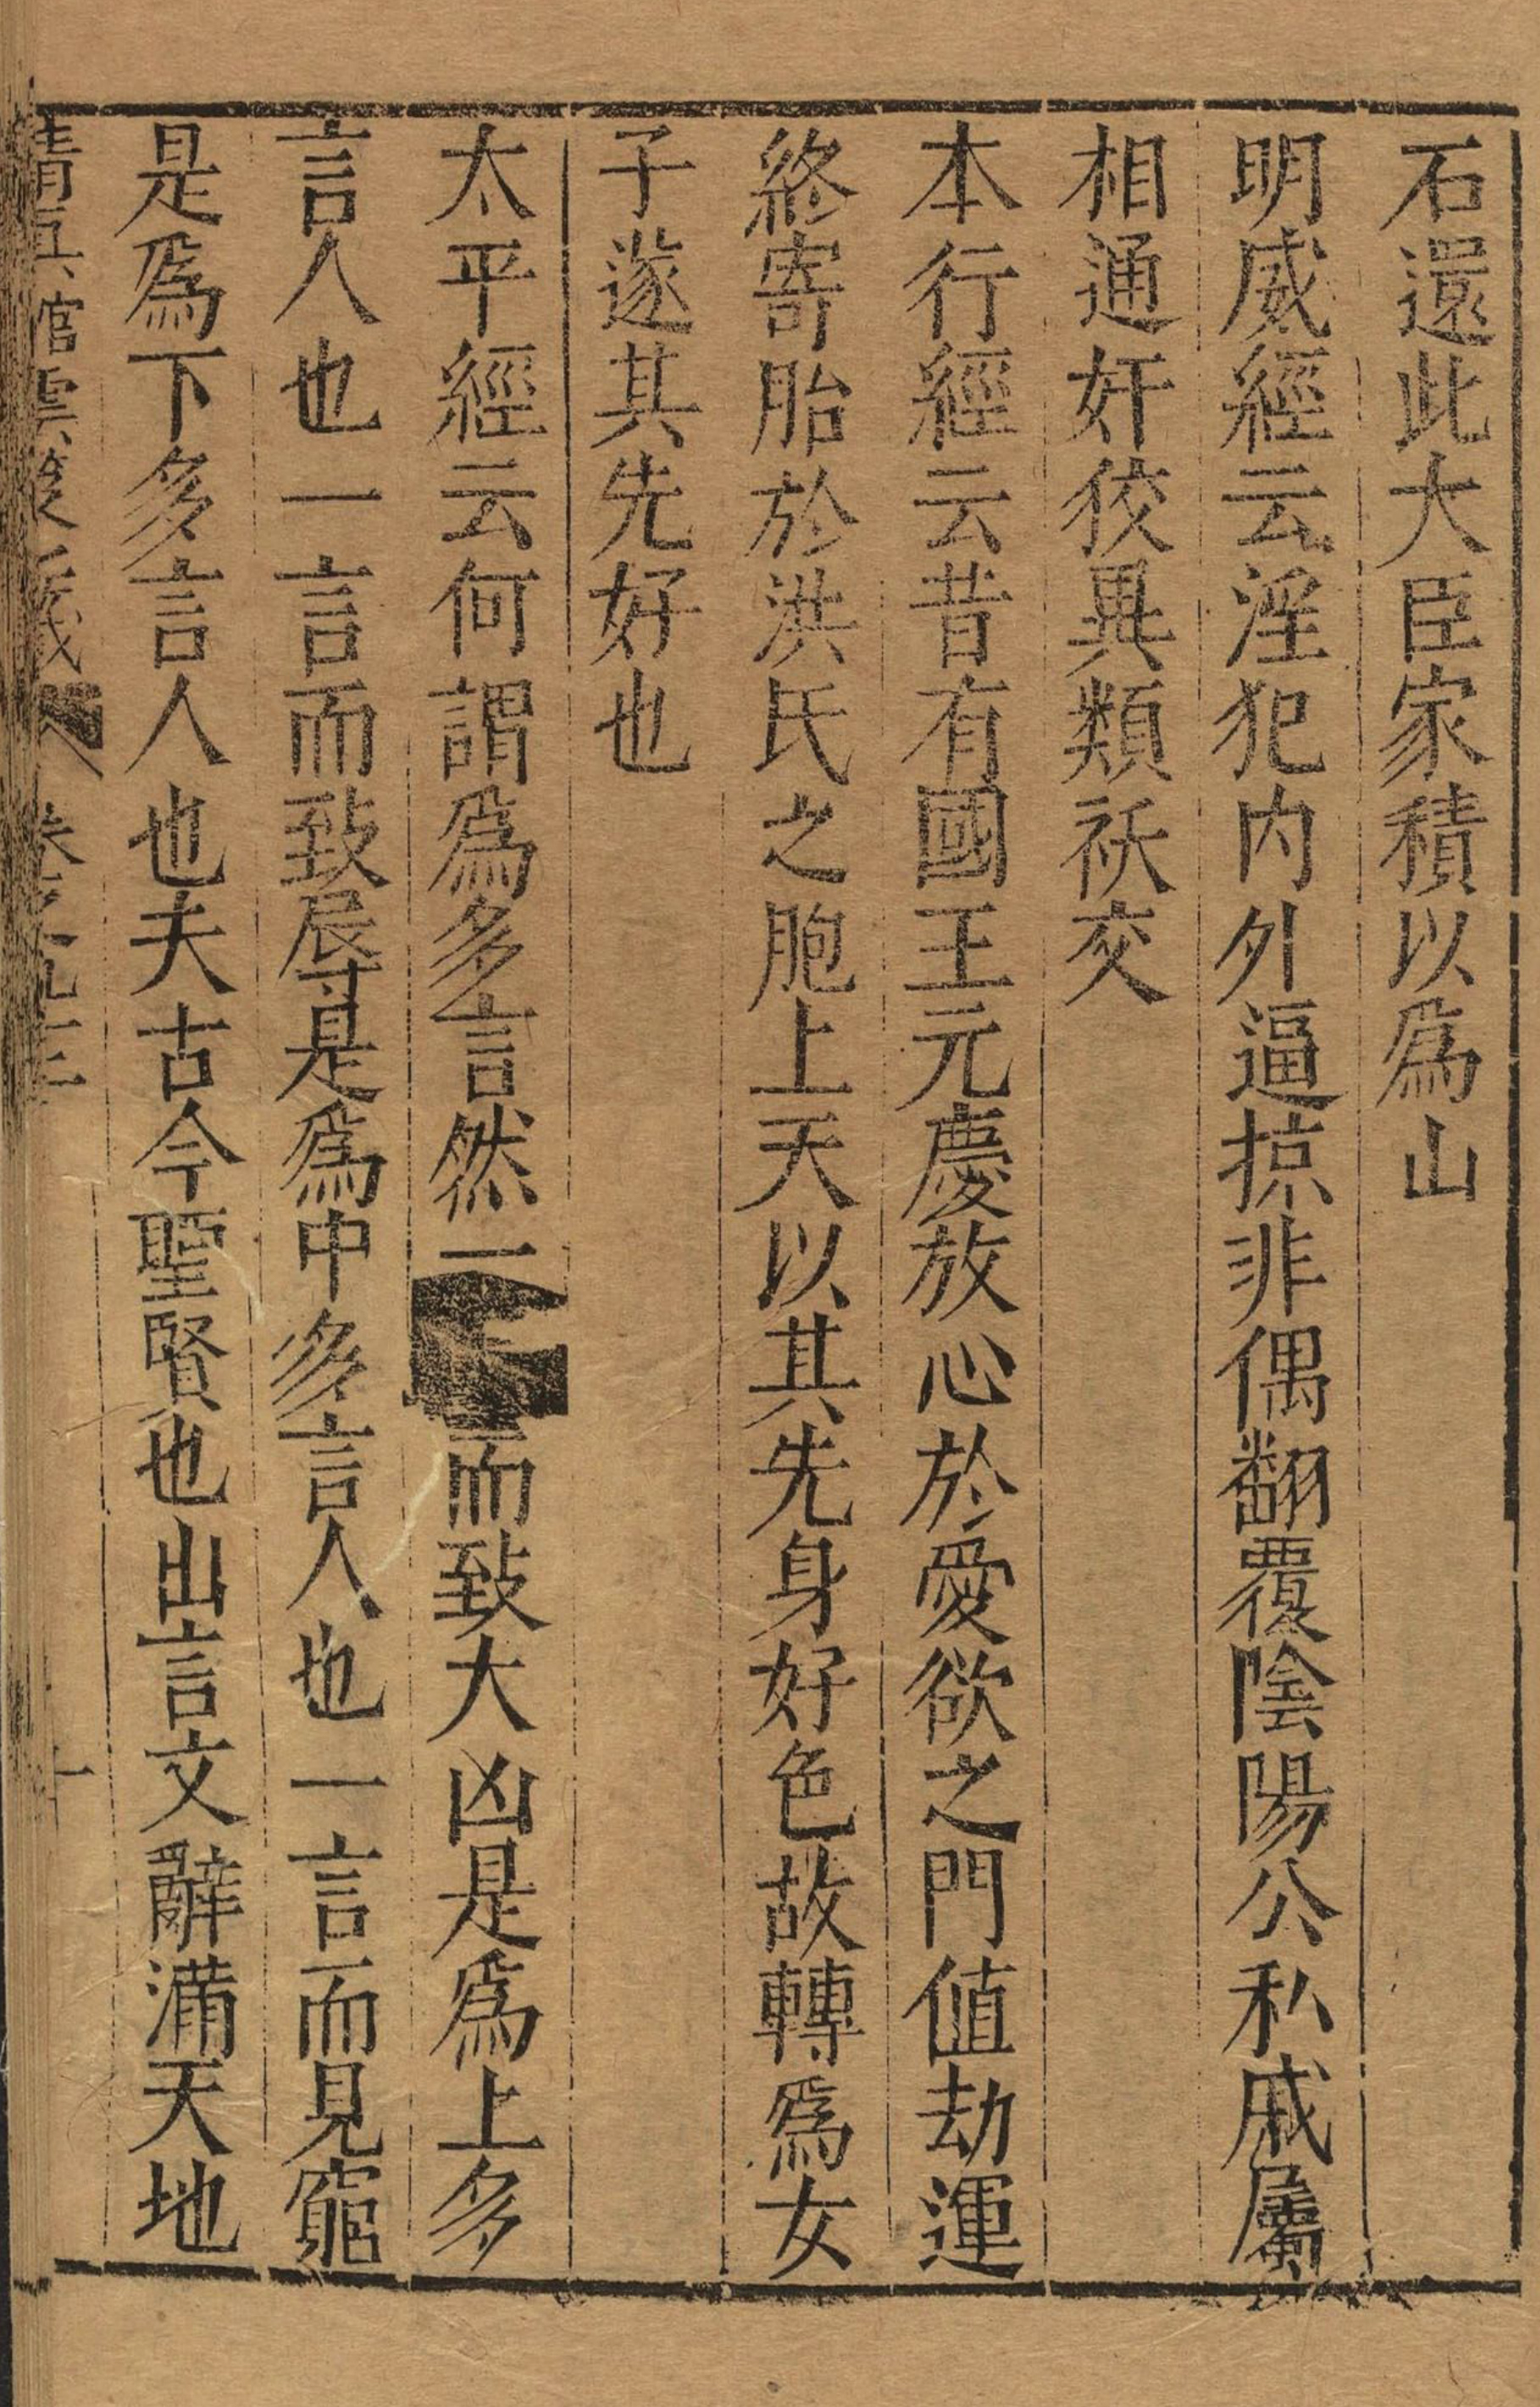 石還此大臣家積以爲山
明威經云淫犯内外逼掠非偶翻覆陰陽公私戚屬
相通奸狡異類祅交
本行經云昔有國王元慶放心於愛欲之門値劫運
終寄胎於洪氏之胞上天以其先身好色故轉爲女
子遂其先好也
太平經云何謂爲多言然一而致大凶是爲上多
言人也一言而致辱是爲中多言人也一言而見窮
是爲下多言人也夫古今聖賢也出言文辭滿天地